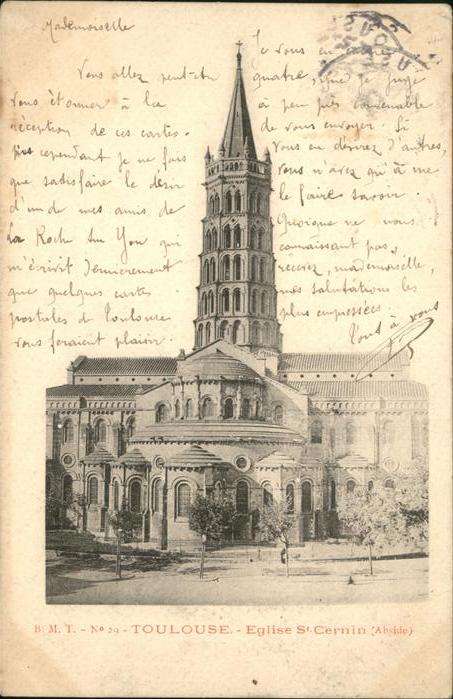 Mademoiselle
Vous allez peut-être
vous étonner à la
réception de ces cartes.
cependant je ne fais
que satisfaire le désir
d'un de mes amis de
La Roche sur Yon qui
m'écrivit dernièrement
que quelques cartes
postales de Toulouse
vous feraient plaisir.
Je vous en
quatre, que je juge
à peu près convenable
de vous envoyer. Si
vous en désirez d'autres,
vous n'avez qu'à me
le faire savoir.
Quoique ne vous
connaissant pas,
recevez, mademoiselle,
mes salutations les
plus empressées.
Tout à vous
B. M. T. - No 29 - TOULOUSE. - Eglise St-Cernin (Abside)